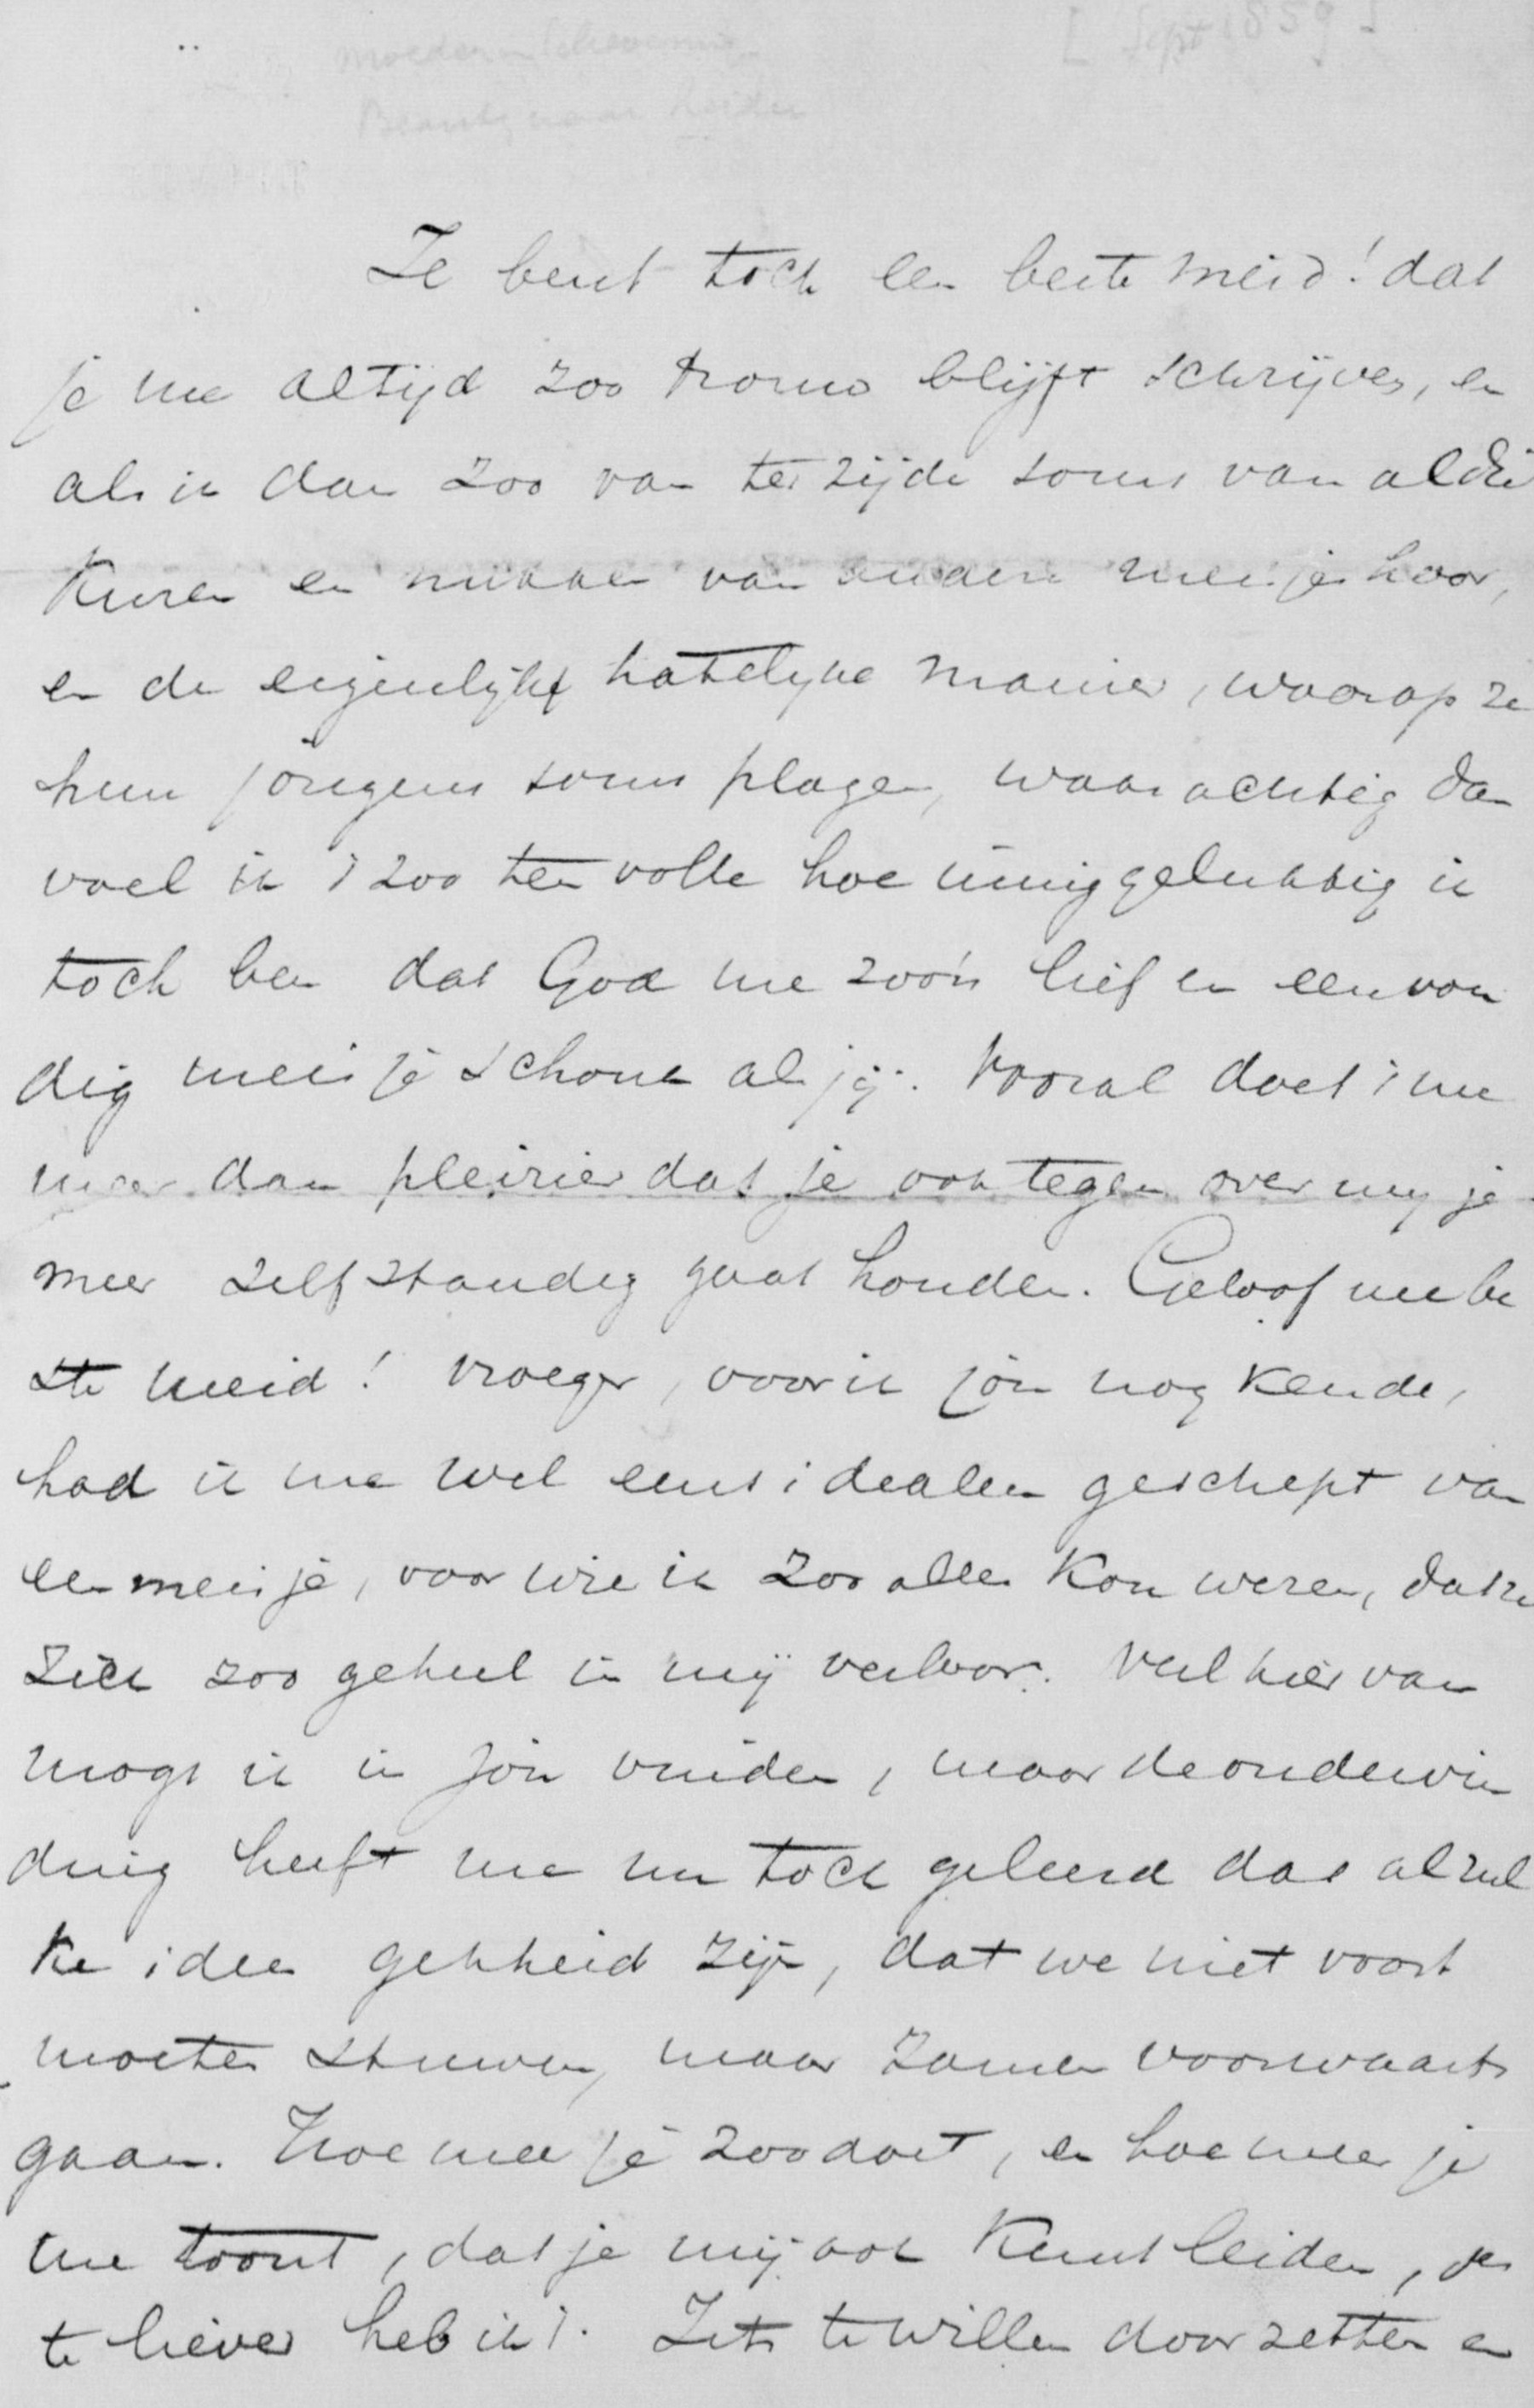 [Sept 1859]
moeder Scheveningen
Beantw. naar Leiden
Je bent toch een beste meid! dat
je me altijd zoo trouw blijft schrijven, en
als ik dan zoo van ter zijde soms van al die
kuren en nukken van andere meisjes hoor,
en de eigenlijk hatelijke manier, waarop ze
hun jongens soms plagen, waarachtig dan
voel ik 't zoo ten volle hoe innig gelukkig ik
toch ben dat God me zoo'n lief en eenvou
dig meisje schonk als jij. Vooral doet 't me
meer dan pleizier dat je ook tegen over mij je
meer zelfstandig gaat houden. Geloof me be
ste meid! vroeger, voor ik jou nog kende,
had ik me wel eens idealen geschept van
een meisje, voor wie ik zoo alles kon wezen, dat ze
zich zoo geheel in mij verloor. Veel hier van
mogt ik in jou vinden, maar de ondervin
ding heeft me nu toch geleerd dat al zul
ke ideen gekheid zijn, dat we niet voort
moeten stuwen, maar zamen voorwaarts
gaan. Hoe meer je zoo doet, en hoe meer je
me toont, dat je mij ook kunt leiden, des
te liever heb ik 't. Iets te willen doorzetten en